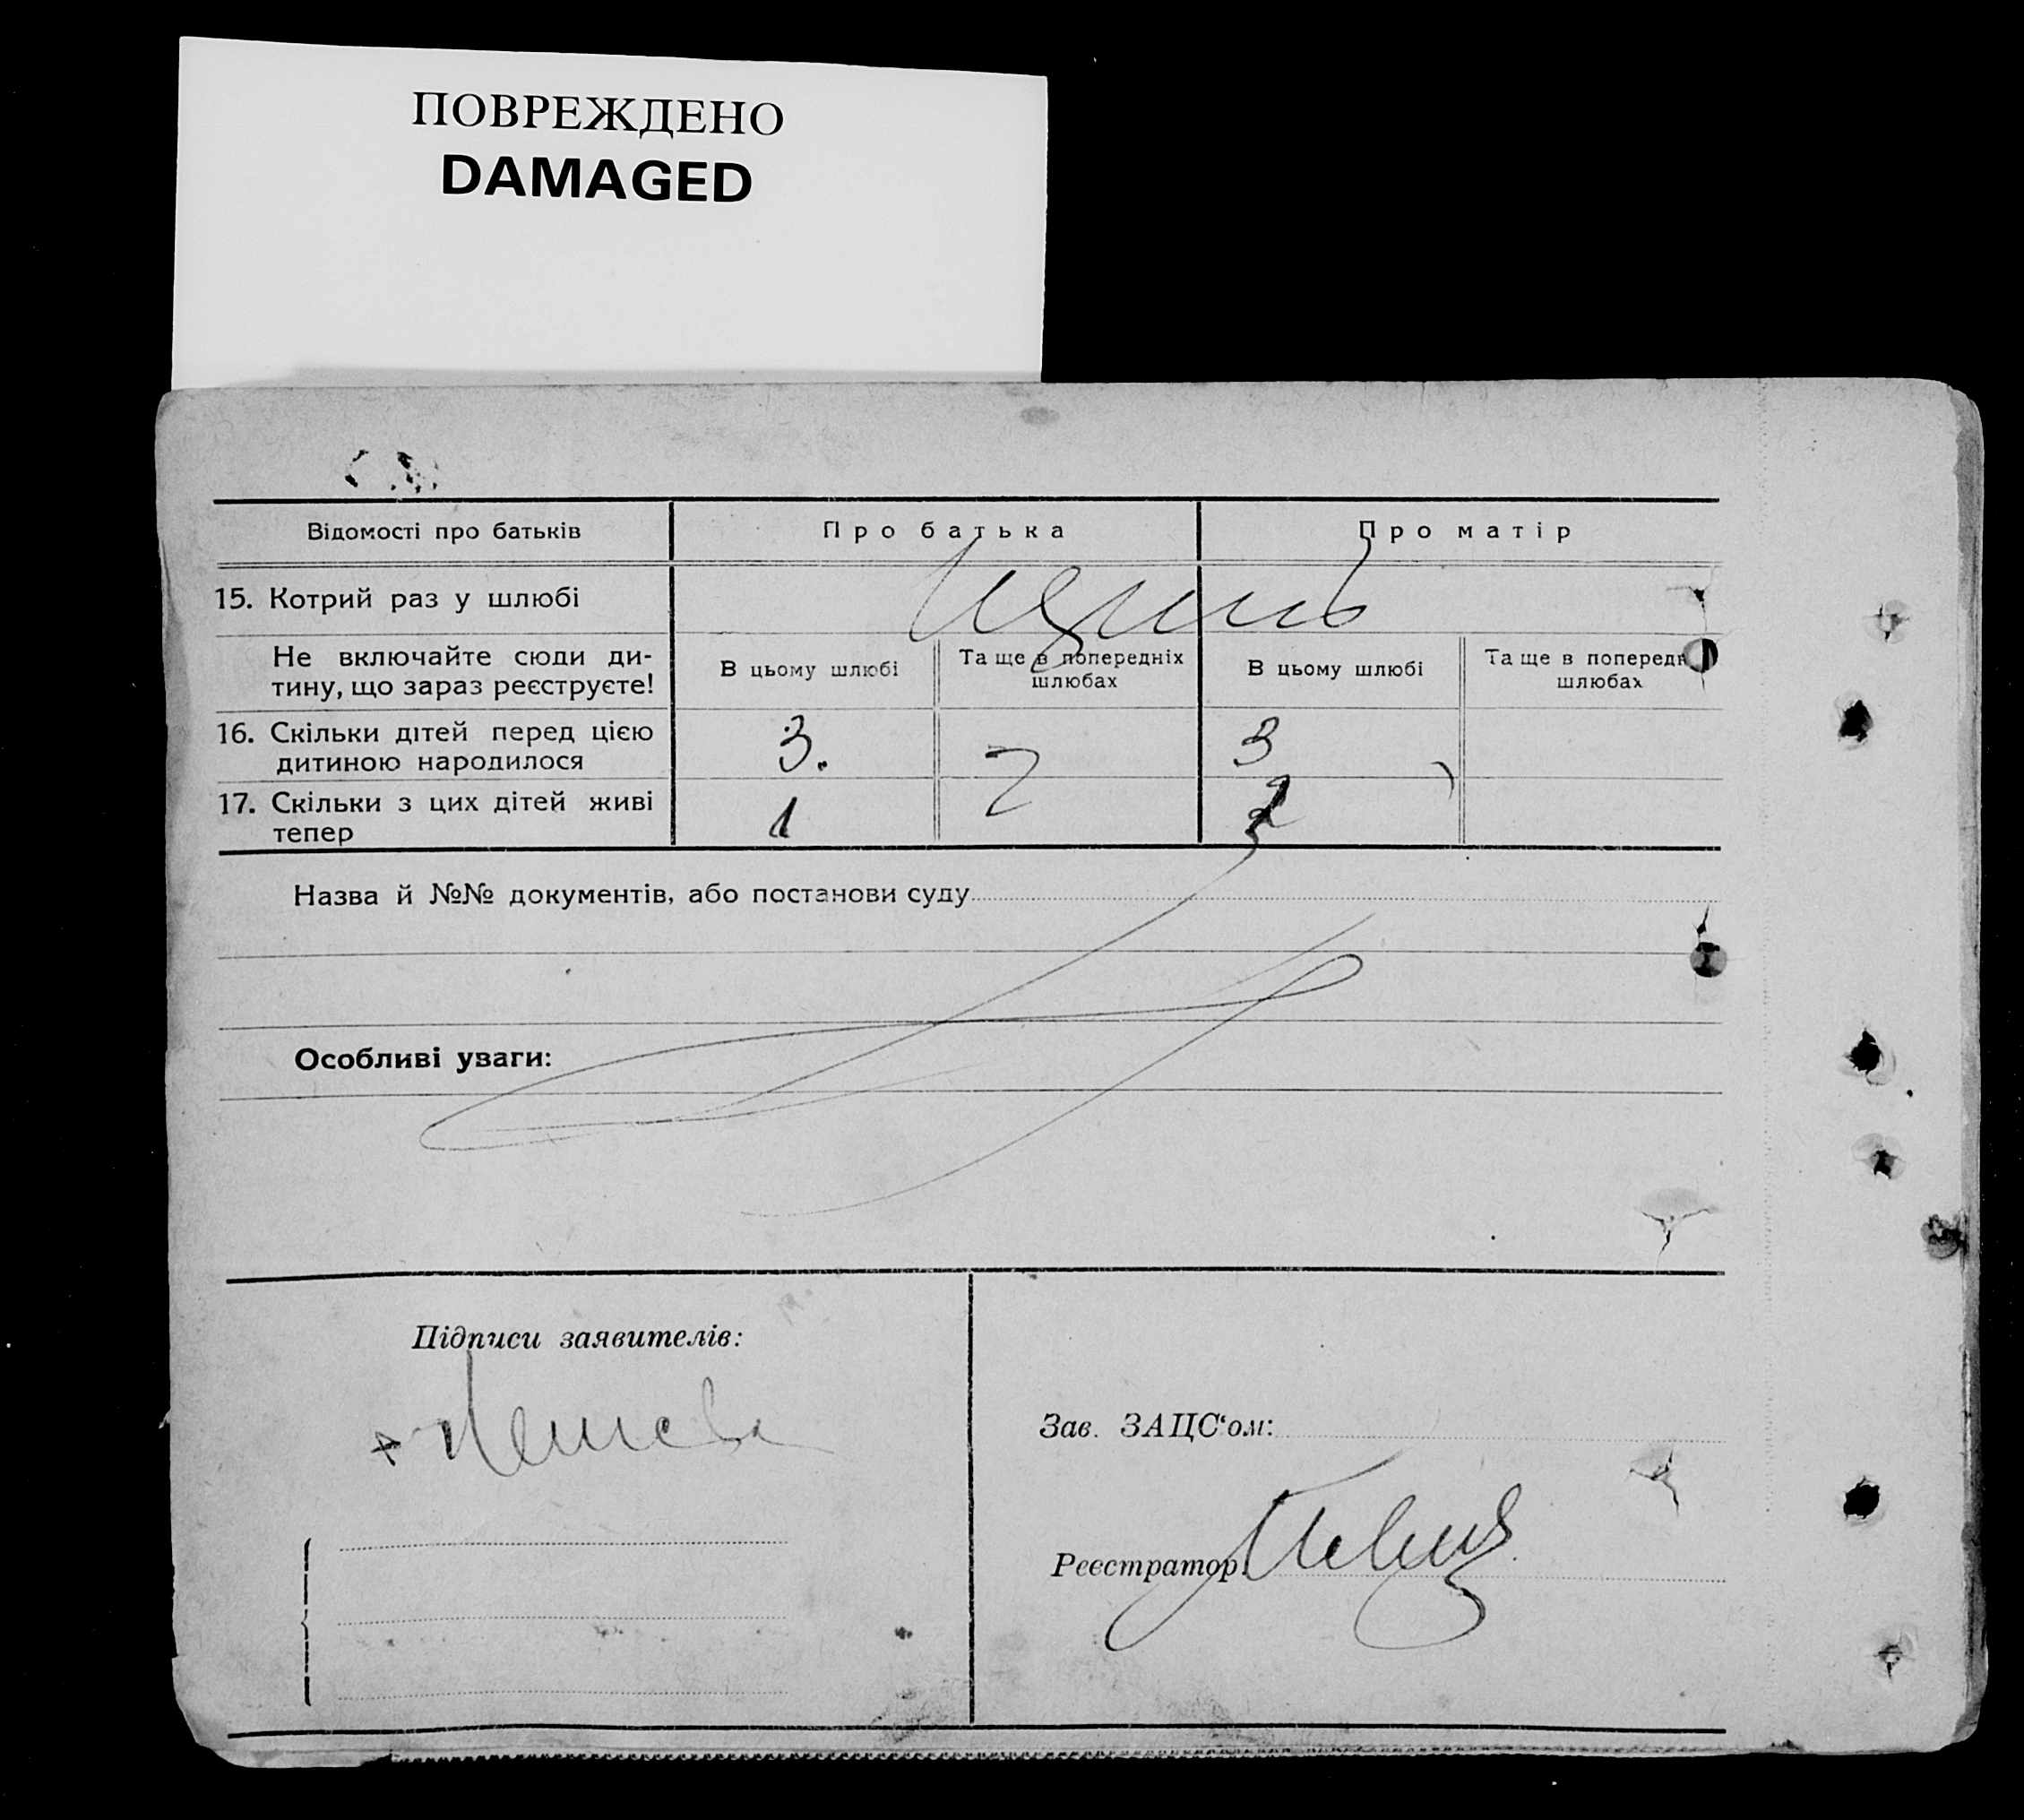 ПОВРЕЖДЕНО
DAMAGED
Відомості про батьків
Про батька
Про матір
15. Котрий раз у шлюбі
Не включайте сюди ди-
тину, що зараз реєструєте!
В цьому шлюбі
Та ще в попередніх
шлюбах
В цьому шлюбі
Та ще в
шлюбах
16. Скільки дітей перед цією
дитиною народилося
3.
3
17. Скільки з цих дітей живі
тепер
1
Назва й №№ документів, або постанови суду
Особливі уваги:
Підписи заявителів:
Зав. ЗАЦС‘ом:
Реєстратор